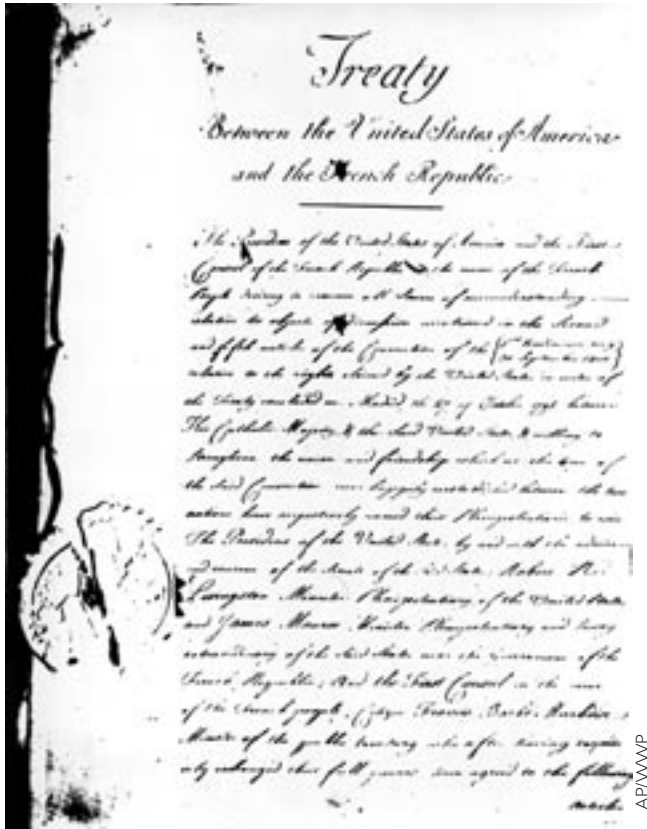 Treaty
Between the United States of America
and the French Republic
The President of the United States of America and the First
Consul of the French Republic in the name of the French
People desiring to remove all Source of misunderstanding
relative to objects of discussion mentioned in the Second
and fifth articles of the Convention of the
relative to the rights claimed by the United States in virtue of
the Treaty concluded at Madrid the 27 of October 1795 between
His Catholic Majesty & the Said United States, & willing to
Strengthen the union and friendship which at the time of
the Said Convention was happily reestablished between the two
nations have respectively named their Plenipotentiaries to wit
The President of the United States, by and with the advice
and consent of the Senate of the Said States; Robert R.
Livingston Minister Plenipotentiary of the United States
and James Monroe Minister Plenipotentiary and Envoy
extraordinary of the Said States near the Government of the
French Republic; And the First Consul in the name
of the French people, Citizen Francis Barbé Marbois
Minister of the public treasury who after having
exchanged their full powers have agreed to the following
AP/WWP